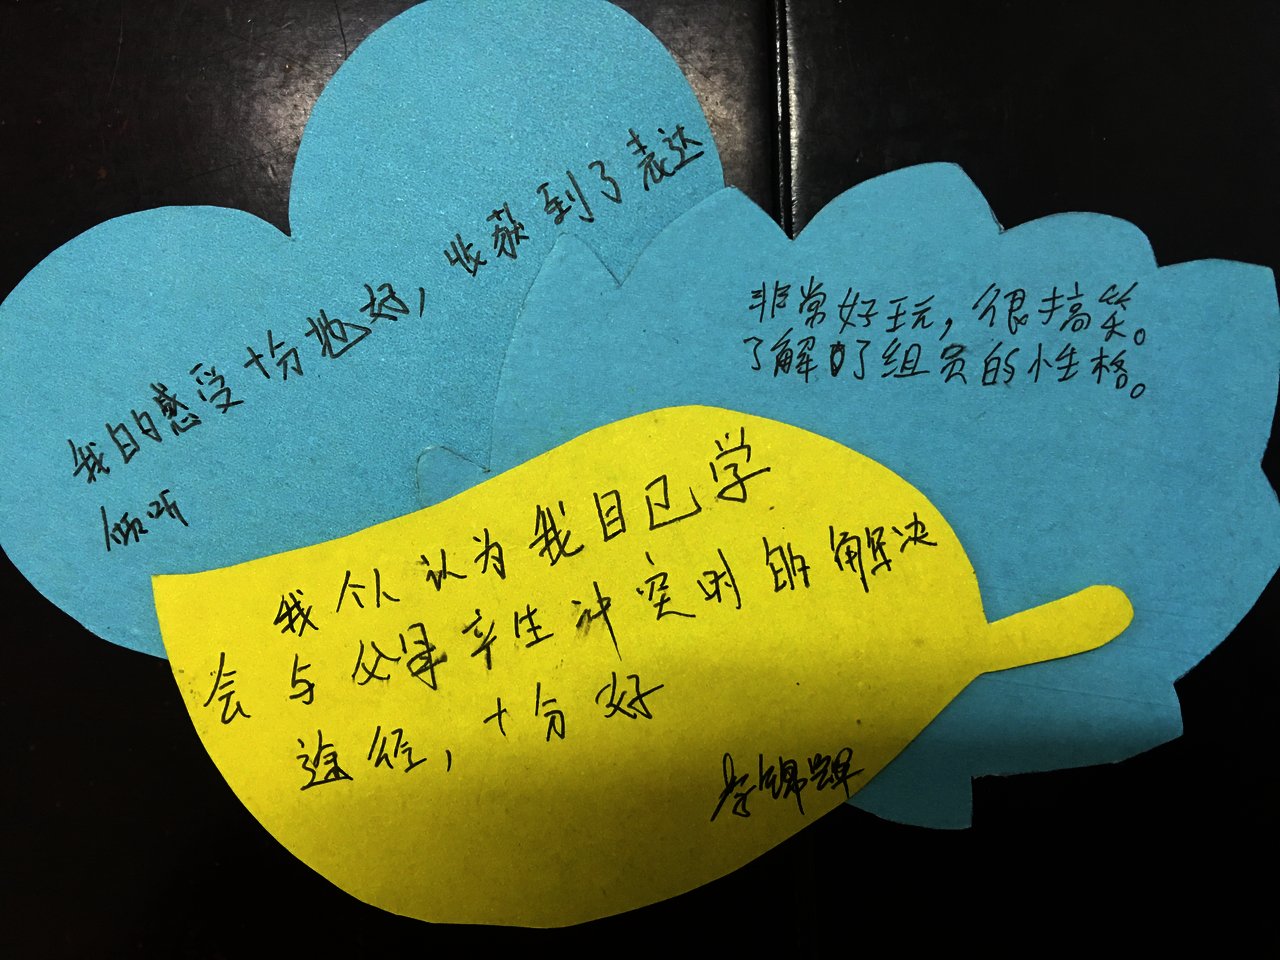 我的感受十分地好，收获到了表达
倾听
非常好玩，很搞笑。
了解了组员的性格。
我个人认为我自已学
会与父母产生冲突时的解决
途径，十分好
李锦辉